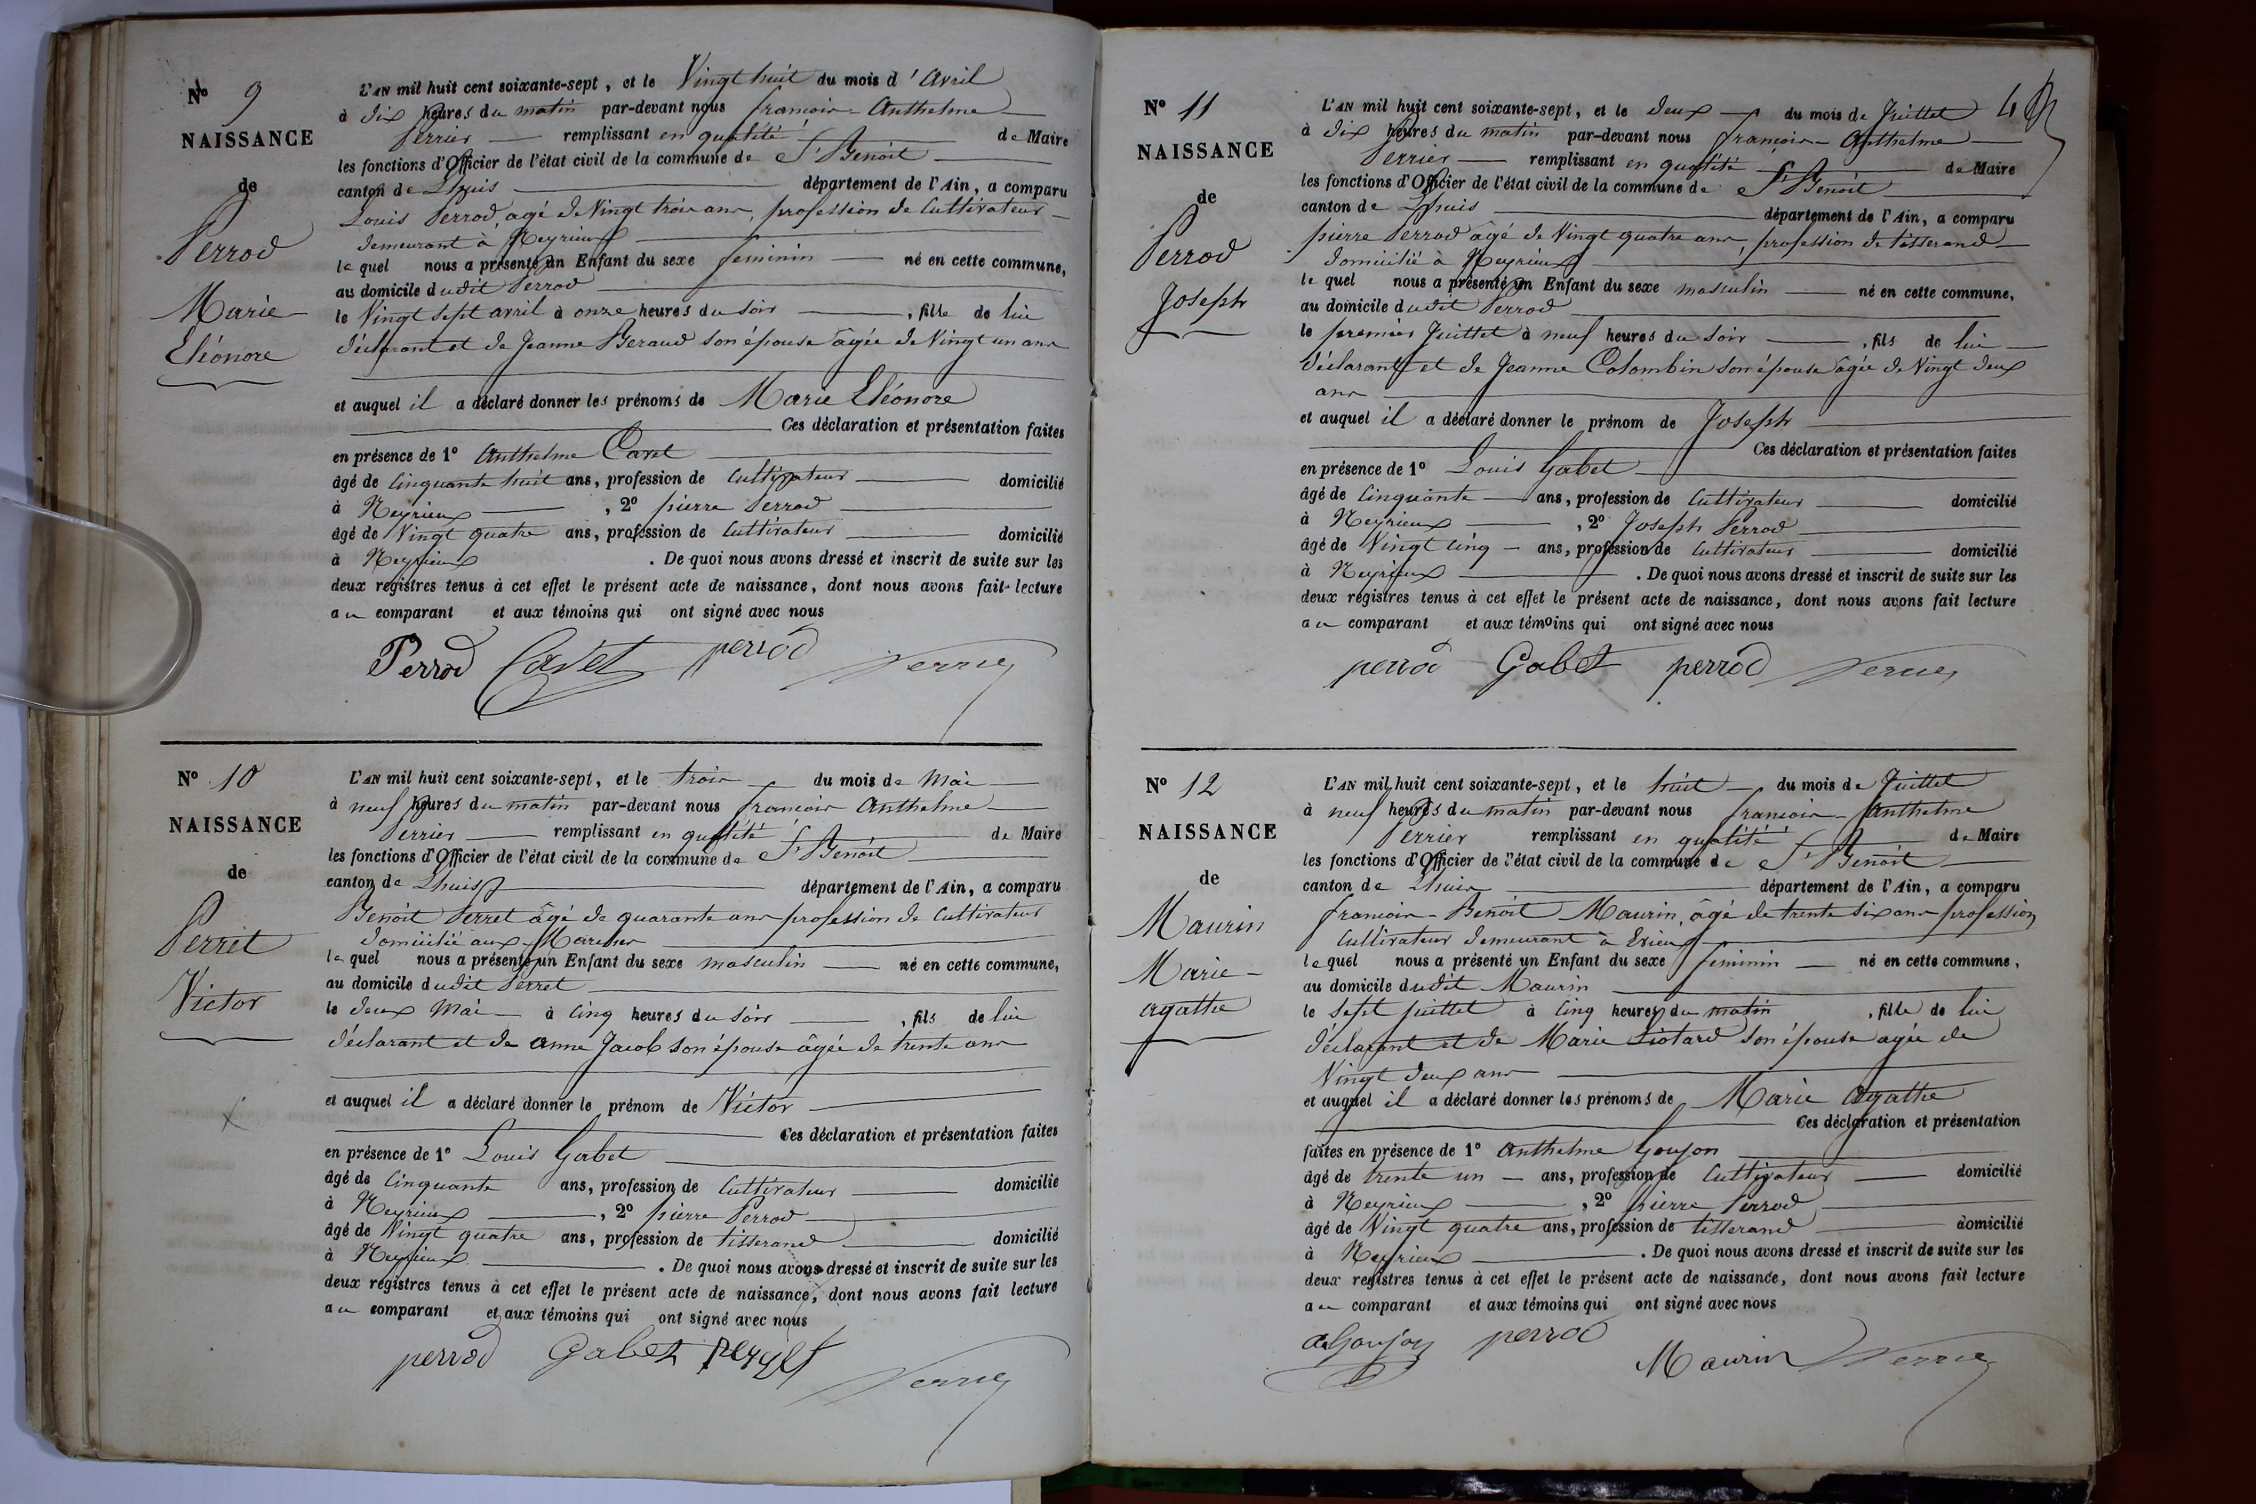 N° 9
NAISSANCE
de
Perrod
Marie
Eléonore
L'AN mil huit cent soixante-sept, et le Vingt huit du mois d'Avril
à dix heures du matin par-devant nous françois Anthelme
Perrier remplissant en qualité de Maire
les fonctions d'Officier de l'état civil de la commune de St Benoit
canton de Lhuis département de l'Ain, a comparu
Louis Perrod, agé de Vingt trois ans, profession de Cultivateur
demeurant à Neyrieux
lequel nous a présenté un Enfant du sexe feminin né en cette commune,
au domicile dudit Perrod
le Vingt sept avril à onze heures du soir, fille de lui
déclarant et de Jeanne Beraud son épouse âgée de Vingt un ans
et auquel il a déclaré donner les prénoms de Marie Eléonore
Ces déclaration et présentation faites
en présence de 1° Anthelme Cavet
âgé de Cinquante huit ans, profession de Cultivateur domicilié
à Neyrieux, 2° pierre Perrod
âgé de Vingt quatre ans, profession de Cultivateur domicilié
à Neyrieux. De quoi nous avons dressé et inscrit de suite sur les
deux registres tenus à cet effet le présent acte de naissance, dont nous avons fait lecture
au comparant et aux témoins qui ont signé avec nous
Perrod Cavet perrod
N° 10
NAISSANCE
de
Perret
Victor
L'AN mil huit cent soixante-sept, et le trois du mois de Mai
à neuf heures du matin par-devant nous françois Anthelme
Perrier remplissant en qualité de Maire
les fonctions d'Officier de l'état civil de la commune de St Benoit
canton de Lhuis département de l'Ain, a comparu
Benoit Perret âgé de quarante ans profession de Cultivateur
domicilié aux
lequel nous a présenté un Enfant du sexe masculin né en cette commune,
au domicile dudit Perret
le deux Mai à Cinq heures du soir, fils de lui
déclarant et de anne Jacob son épouse âgée de trente ans
et auquel il a déclaré donner le prénom de Victor
Ces déclaration et présentation faites
en présence de 1° Louis Gabet
âgé de Cinquante ans, profession de Cultivateur domicilié
à Neyrieux, 2° pierre Perrod
âgé de Vingt quatre ans, profession de tisserand domicilié
à Neyrieux. De quoi nous avons dressé et inscrit de suite sur les
deux registres tenus à cet effet le présent acte de naissance, dont nous avons fait lecture
au comparant et aux témoins qui ont signé avec nous
perrod Gabet perret
N° 11
NAISSANCE
de
Perrod
Joseph
L'AN mil huit cent soixante-sept, et le deux du mois de Juillet
à dix heures du matin par-devant nous françois Anthelme
Perrier remplissant en qualité de Maire
les fonctions d'Officier de l'état civil de la commune de St Benoit
canton de Lhuis département de l'Ain, a comparu
pierre Perrod âgé de Vingt quatre ans, profession de tisserand
domicilié à Neyrieux
lequel nous a présenté un Enfant du sexe masculin né en cette commune,
au domicile dudit Perrod
le premier Juillet à neuf heures du soir, fils de lui
déclarant et de Jeanne Colombin son épouse âgée de Vingt deux
ans
et auquel il a déclaré donner le prénom de Joseph
Ces déclaration et présentation faites
en présence de 1° Louis Gabet
âgé de Cinquante ans, profession de Cultivateur domicilié
à Neyrieux, 2° Joseph Perrod
âgé de Vingt cinq ans, profession de Cultivateur domicilié
à Neyrieux. De quoi nous avons dressé et inscrit de suite sur les
deux registres tenus à cet effet le présent acte de naissance, dont nous avons fait lecture
au comparant et aux témoins qui ont signé avec nous
perrod Gabet perrod
N° 12
NAISSANCE
de
Maurin
Marie
agathe
L'AN mil huit cent soixante-sept, et le huit du mois de Juillet
à neuf heures du matin par-devant nous françois Anthelme
Perrier remplissant en qualité de Maire
les fonctions d'Officier de l'état civil de la commune de St Benoit
canton de Lhuis département de l'Ain, a comparu
françois Benoit Maurin, âgé de trente six ans profession
Cultivateur demeurant à Evieu
lequel nous a présenté un Enfant du sexe feminin né en cette commune,
au domicile dudit Maurin
le Sept juillet à Cinq heures du matin, fille de lui
déclarant et de Marie Liotard son épouse agée de
Vingt deux ans
et auquel il a déclaré donner les prénoms de Marie Agathe
Ces déclaration et présentation
faites en présence de 1° Anthelme Goujon
âgé de trente un ans, profession de Cultivateur domicilié
à Neyrieux, 2° pierre Perrod
âgé de Vingt quatre ans, profession de tisserand domicilié
à Neyrieux. De quoi nous avons dressé et inscrit de suite sur les
deux registres tenus à cet effet le présent acte de naissance, dont nous avons fait lecture
au comparant et aux témoins qui ont signé avec nous
aGoujon perrod
Maurin